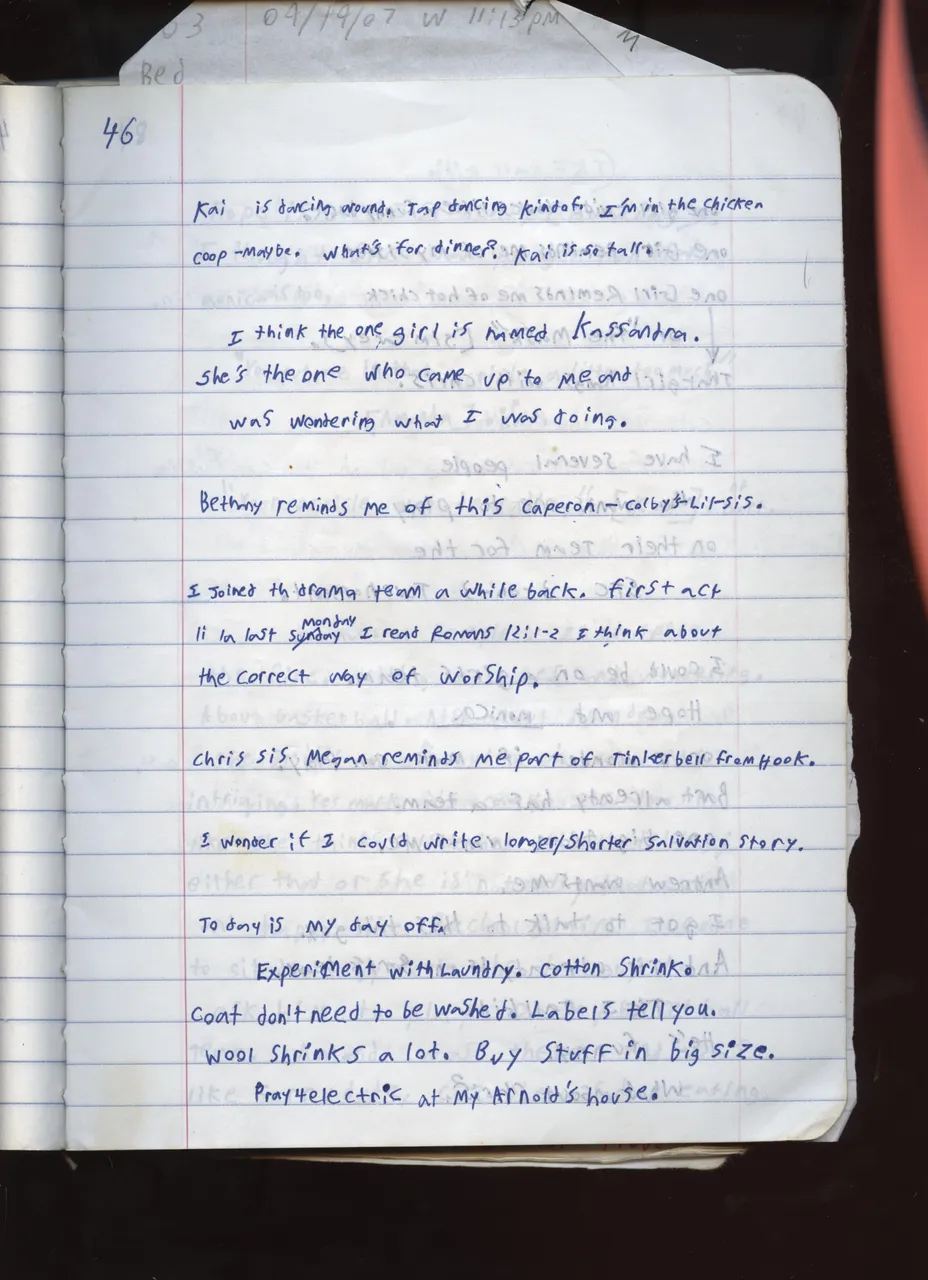 03 04/19/07 W 11:13 PM
Bed
46
Kai is dancing around. Tap dancing kindof. I'm in the chicken
coop - maybe. What's for dinner? Kai is so tall.
I think the one girl is named Kassandra.
She's the one who came up to me and
was wondering what I was doing.
Bethany reminds me of this caperon - colby's-Lil-sis.
I Joined th drama team a while back. first act
li la last sunday monday I read Romans 12:1-2 I think about
the correct way of worship.
Chris sis. Megan reminds me part of Tinkerbell from Hook.
I wonder if I could write longer/shorter salvation story.
To day is my day off.
Experiment with Laundry. Cotton Shrink.
Coat don't need to be washed. Labels tell you.
Wool Shrinks a lot. Buy Stuff in big size.
Pray4electric at My Arnold's house.